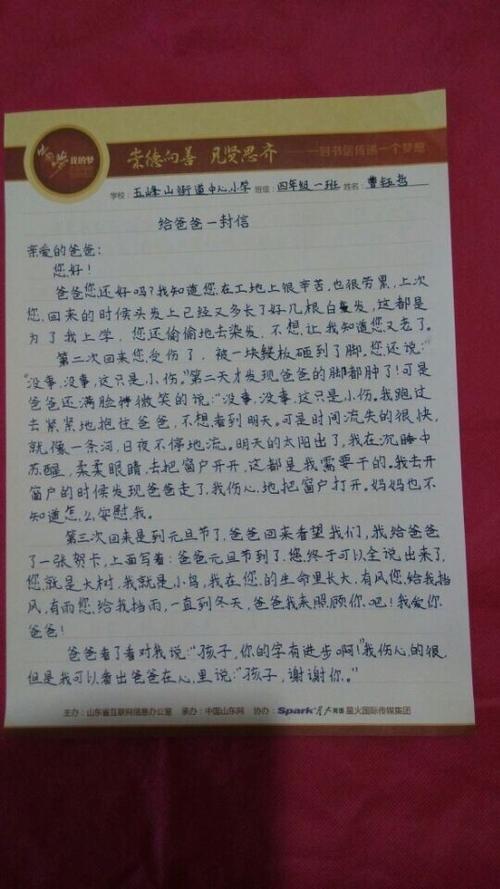 中国梦 我的梦
崇德向善 见贤思齐 ——一封书信传递一个梦想
学校：五峰山街道中心小学 班级：四年级一班 姓名：曹钰哲
给爸爸一封信
亲爱的爸爸：
您好！
爸爸您还好吗？我知道您在工地上很辛苦，也很劳累，上次
您回来的时候头发上已经又多长了好几根白发，这都是
为了我上学，您还偷偷地去染发，不想让我知道您又老了。
第二次回来您受伤了，被一块板砸到了脚，您还说：
“没事，没事，这只是小伤。”第二天才发现爸爸的脚都肿了！可是
爸爸还满脸微笑的说：“没事，没事，这只是小伤。我跑过
去紧紧地抱住爸爸，不想看到明天。可是时间流失的很快，
就像一条河，日夜不停地流。明天的太阳出了，我在沉睡中
苏醒，柔柔眼睛，去把窗户开开，这都是我需要干的。我去开
窗户的时候发现爸爸走了，我伤心地把窗户打开。妈妈也不
知道怎么安慰我。
第三次回来是到元旦节了，爸爸回来看望我们，我给爸爸
了一张贺卡，上面写着：爸爸元旦节到了，您终于可以全说出来了，
您就是大树，我就是小鸟，我在您的生命里长大，有风您给我挡
风，有雨您给我挡雨，一直到冬天，爸爸我来照顾你吧！我爱你
爸爸！
爸爸看了看对我说：“孩子，你的字有进步啊！”我伤心的很，
但是我可以看出爸爸在心里说：“孩子，谢谢你。”
主办：山东省互联网信息办公室 承办：中国山东网 协办：Spark 星火英语 星火国际传媒集团